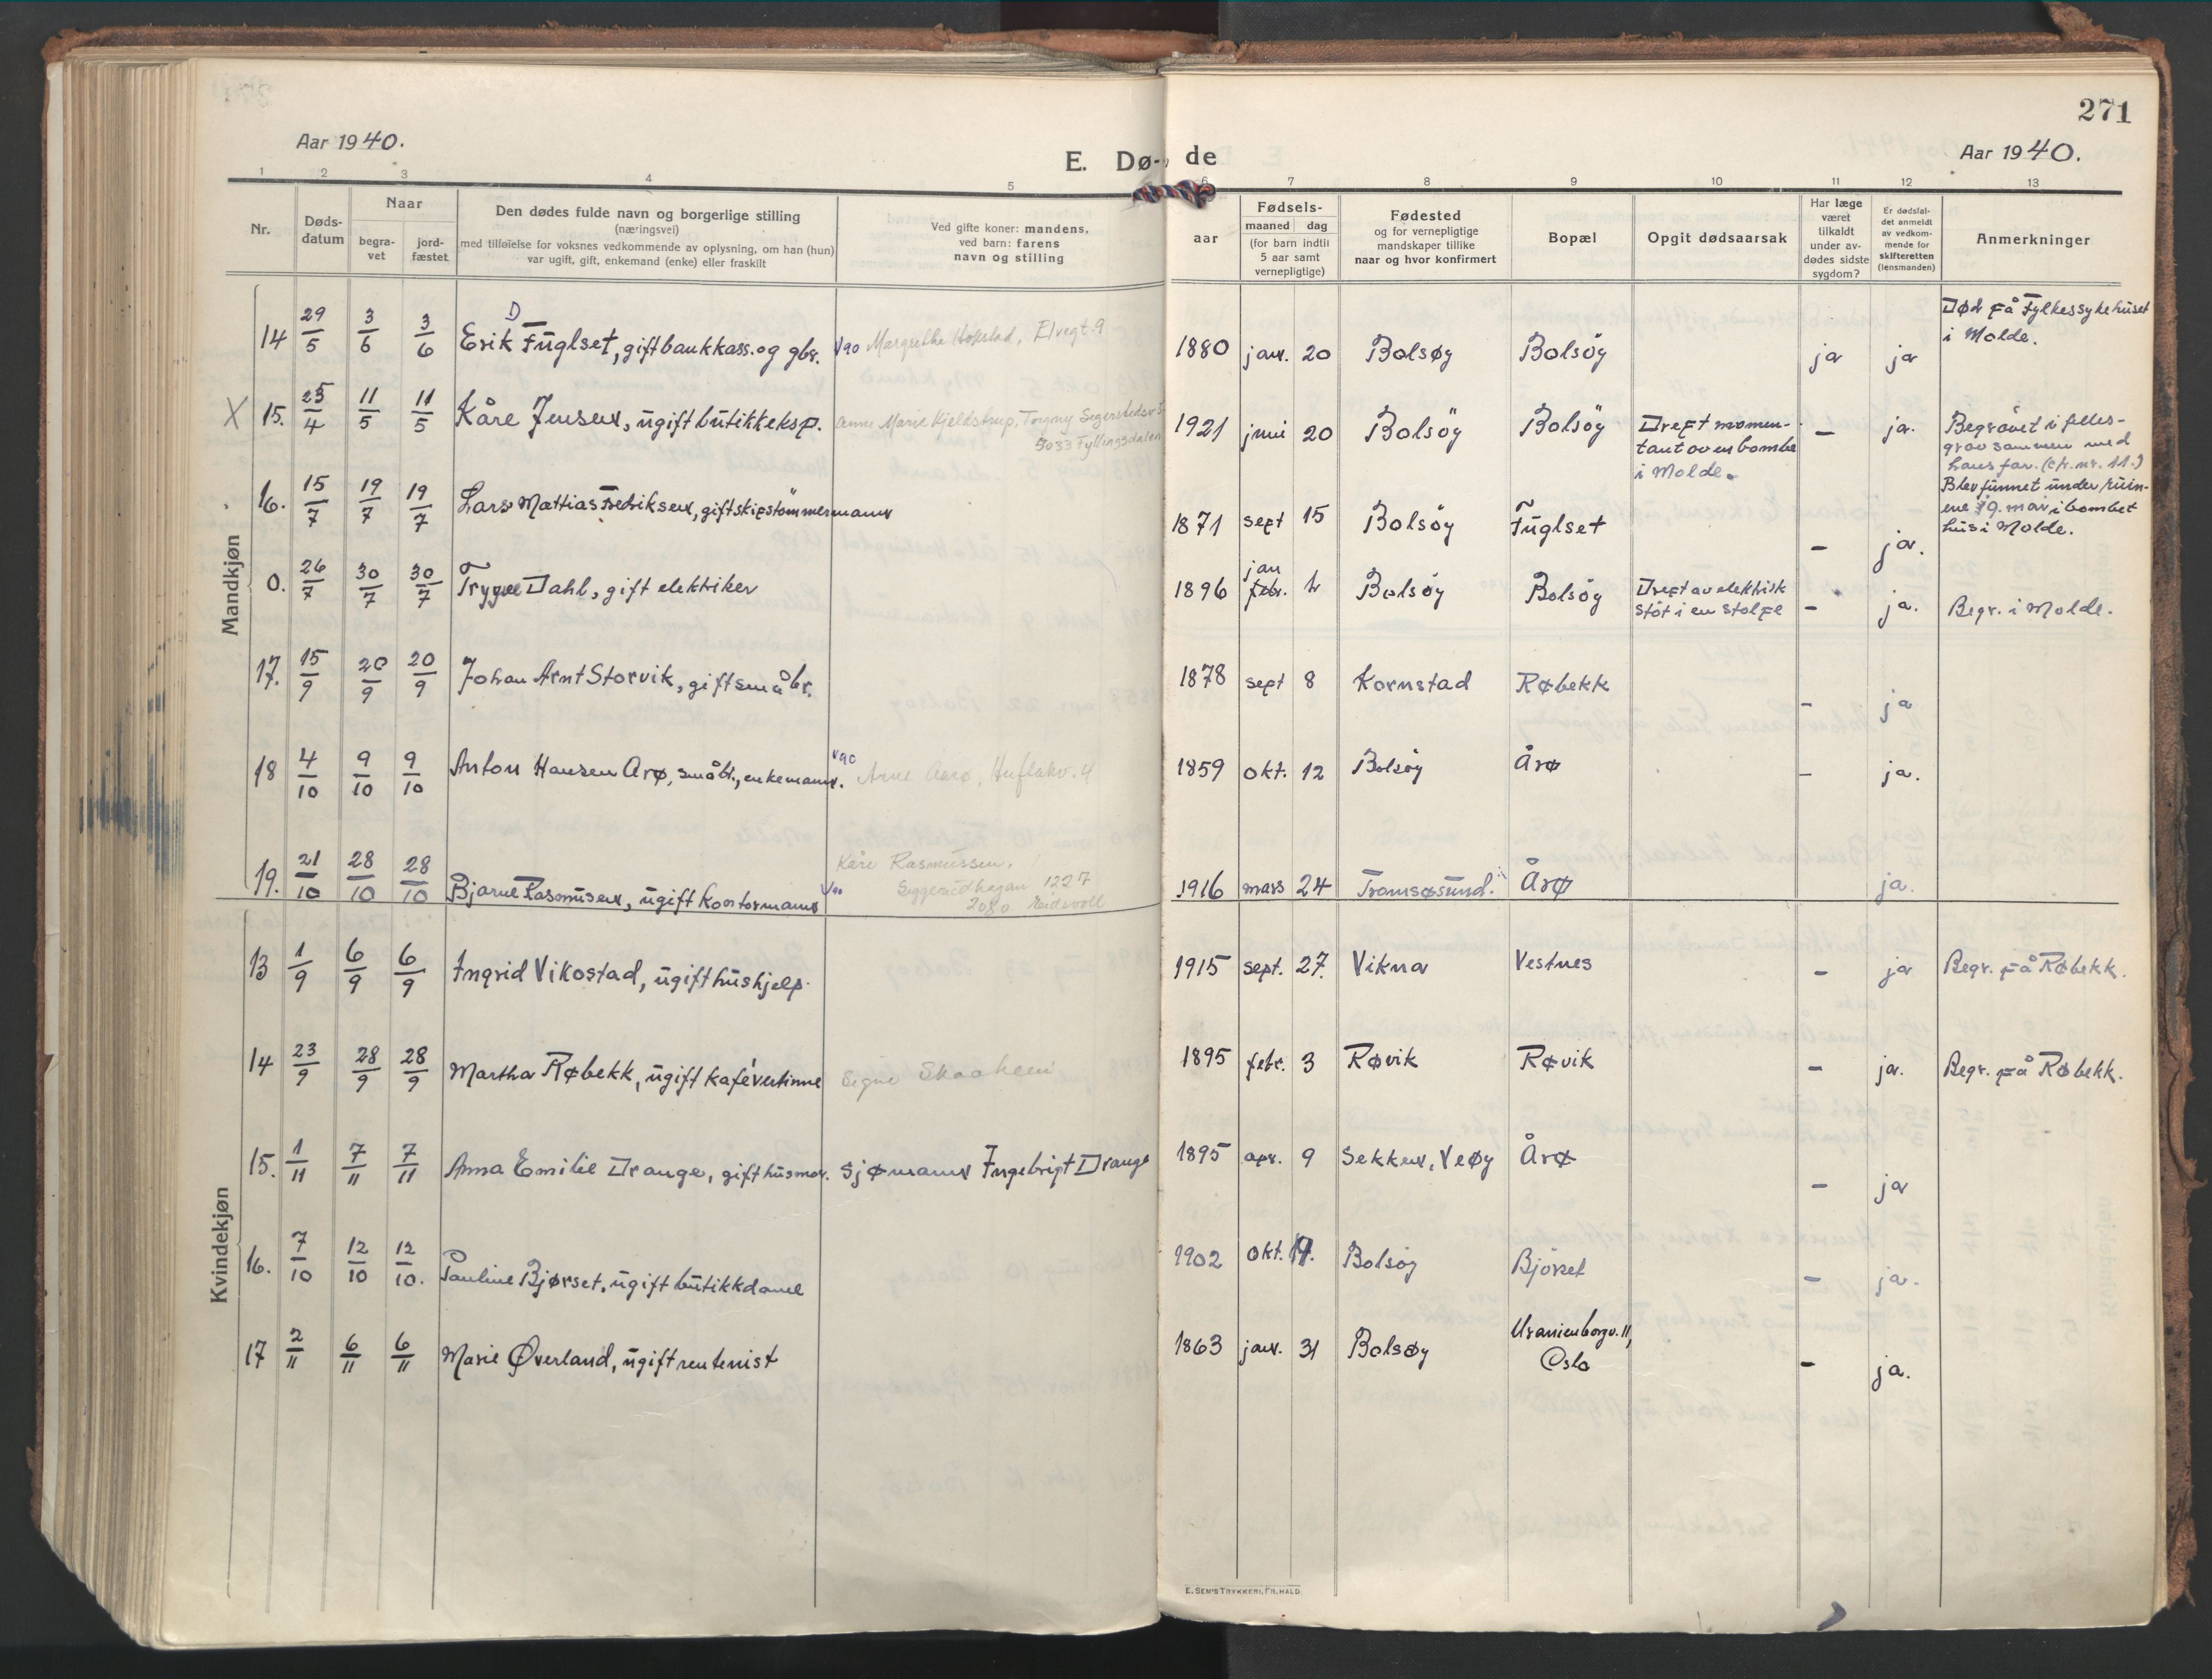 271
Aar 1940.
E. Dø-
de
Aar 1940.
1 2 3 4 5 6 7 8 9 10 11 12 13
Nr.
Døds-
datum
Naar
begra-
vet
jord-
fæstet
Den dødes fulde navn og borgerlige stilling
(næringsvei)
med tilføielse for voksnes vedkommende av oplysning, om han (hun)
var ugift, gift, enkemand (enke) eller fraskilt
Ved gifte koner: mandens,
ved barn: farens
navn og stilling
Fødsels-
aar
maaned dag
(for barn indtil
5 aar samt
vernepligtige)
Fødested
og for vernepligtige
mandskaper tillike
naar og hvor konfirmert
Bopæl
Opgit dødsaarsak
Har læge
været
tilkaldt
under av-
dødes sidste
sygdom?
Er dødsfal-
det anmeldt
av vedkom-
mende for
skifteretten
(lensmanden)
Anmerkninger
Mandkjøn
14 29/5 3/6 3/6 Erik D Fuglset, gift bankkass. og gbr. V90 Margrethe Hokstad, Elvegt. 9 1880 jan. 20 Bolsøy Bolsöy ja ja
Død på Fylkessykehuset
i Molde.
X 15. 25/4 11/5 11/5 Kåre Jensen, ugift butikkeksp. Anne Marie Kjeldstrup, Torgny Segerstedsv.
5033 Fyllingsdalen
1921 juni 20 Bolsöy Bolsöy Drept momen-
tant av en bombe
i Molde.
– ja.
Begravet i felles-
grav sammen med
hans far. (cfr. nr. 11.)
16. 15/7 19/7 19/7 Lars Mattias Fredriksen, gift skipstömmermann 1871 sept 15 Bolsöy Fuglset – ja.
Blev funnet under ruin-
ene 19. mai i bombet
hus i Molde.
0. 26/7 30/7 30/7 Trygve Dahl, gift elektriker 1896 jan febr. 4 Bolsöy Bolsöy Drept av elektrisk
støt i en stolpe
– ja. Begr. i Molde.
17. 15/9 20/9 20/9 Johan Arnt Storvik, gift småbr. 1878 sept 8 Kornstad Røbekk – ja
18 4/10 9/10 9/10 Anton Hansen Arø, småbr., enkemann. V90 Arne Aarø, Huflakv. 4 1859 okt. 12 Bolsöy Årø – ja.
19. 21/10 28/10 28/10 Bjarne Rasmusen, ugift kontormann V90 Kåre Rasmussen,
Syggerudhagan 1227
2080 Eidsvoll
1916 mars 24 Tromsøsund. Årø ja.
Kvindekjøn
13 1/9 6/9 6/9 Ingrid Vikostad, ugift hushjelp. 1915 sept. 27. Vikna Vestnes – ja Begr. på Røbekk.
14 23/9 28/9 28/9 Martha Røbekk, ugift kafévertinne Signe Skaaheim 1895 febr. 3 Røvik Røvik – ja. Begr. på Røbekk.
15. 1/11 7/11 7/11 Anna Emilie Drange, gift husmor. Sjømann Ingebrigt Drange 1895 apr. 9 Sekken, Veøy Årø – ja
16. 7/10 12/10 12/10. Pauline Bjørset, ugift butikkdame 1902 okt. 19. Bolsøy Bjørset – ja.
17 2/11 6/11 6/11 Marie Øverland, ugift rentenist 1863 jan. 31 Bolsøy Uranienborgv. 11,
Oslo
– ja.
E. SEM'S TRYKKERI, FR.HALD